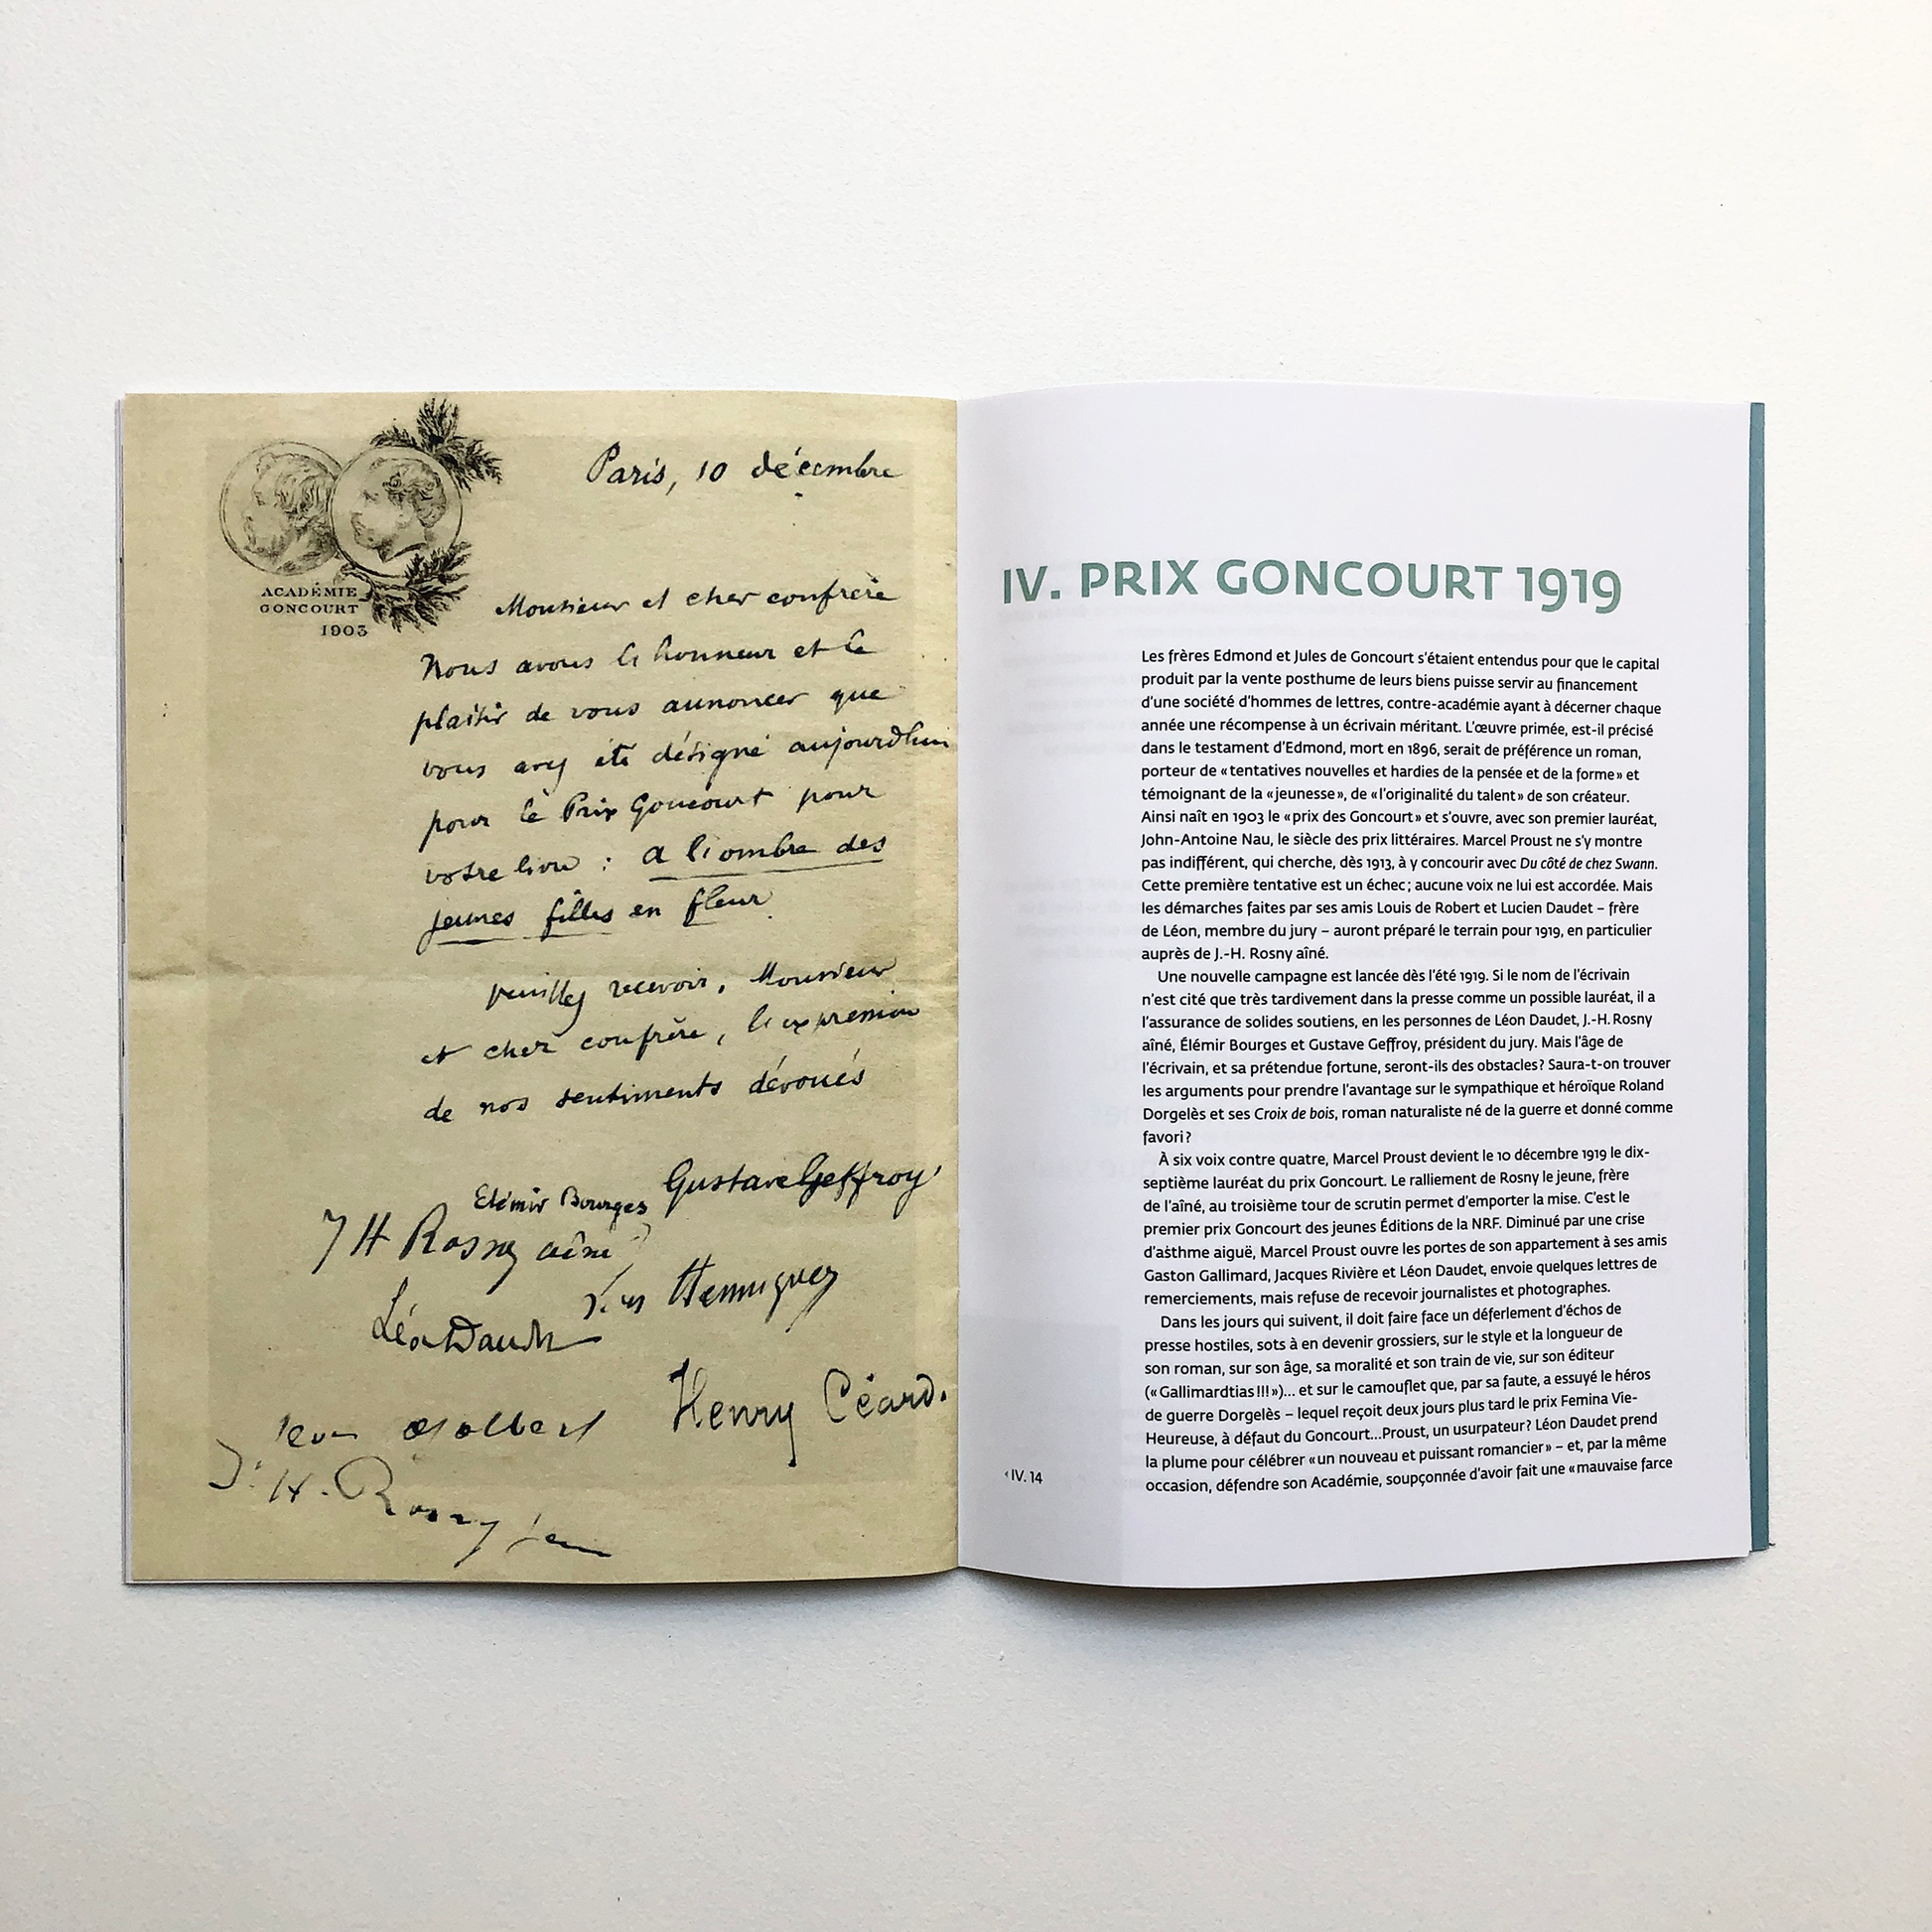 ACADÉMIE
GONCOURT
1903
Paris, 10 décembre
Monsieur et cher confrère
Nous avons le honneur et le
plaisir de vous annoncer que
vous avez été désigné aujourd'hui
pour le Prix Goncourt pour
votre livre : a l'ombre des
jeunes filles en fleur
Veuillez recevoir, Monsieur
et cher confrère, l'expression
de nos sentiments dévoués
Elémir Bourges Gustave Geffroy
J H Rosny aîné
Hennique
Léon Daudet
Henry Céard.
J. H. Rosny
IV. PRIX GONCOURT 1919
Les frères Edmond et Jules de Goncourt s'étaient entendus pour que le capital
produit par la vente posthume de leurs biens puisse servir au financement
d'une société d'hommes de lettres, contre-académie ayant à décerner chaque
année une récompense à un écrivain méritant. L'œuvre primée, est-il précisé
dans le testament d'Edmond, mort en 1896, serait de préférence un roman,
porteur de « tentatives nouvelles et hardies de la pensée et de la forme » et
témoignant de la « jeunesse », de « l'originalité du talent » de son créateur.
Ainsi naît en 1903 le « prix des Goncourt » et s'ouvre, avec son premier lauréat,
John-Antoine Nau, le siècle des prix littéraires. Marcel Proust ne s'y montre
pas indifférent, qui cherche, dès 1913, à y concourir avec Du côté de chez Swann.
Cette première tentative est un échec ; aucune voix ne lui est accordée. Mais
les démarches faites par ses amis Louis de Robert et Lucien Daudet – frère
de Léon, membre du jury – auront préparé le terrain pour 1919, en particulier
auprès de J.-H. Rosny aîné.
Une nouvelle campagne est lancée dès l'été 1919. Si le nom de l'écrivain
n'est cité que très tardivement dans la presse comme un possible lauréat, il a
l'assurance de solides soutiens, en les personnes de Léon Daudet, J.-H. Rosny
aîné, Élémir Bourges et Gustave Geffroy, président du jury. Mais l'âge de
l'écrivain, et sa prétendue fortune, seront-ils des obstacles ? Saura-t-on trouver
les arguments pour prendre l'avantage sur le sympathique et héroïque Roland
Dorgelès et ses Croix de bois, roman naturaliste né de la guerre et donné comme
favori ?
À six voix contre quatre, Marcel Proust devient le 10 décembre 1919 le dix-
septième lauréat du prix Goncourt. Le ralliement de Rosny le jeune, frère
de l'aîné, au troisième tour de scrutin permet d'emporter la mise. C'est le
premier prix Goncourt des jeunes Éditions de la NRF. Diminué par une crise
d'asthme aiguë, Marcel Proust ouvre les portes de son appartement à ses amis
Gaston Gallimard, Jacques Rivière et Léon Daudet, envoie quelques lettres de
remerciements, mais refuse de recevoir journalistes et photographes.
Dans les jours qui suivent, il doit faire face un déferlement d'échos de
presse hostiles, sots à en devenir grossiers, sur le style et la longueur de
son roman, sur son âge, sa moralité et son train de vie, sur son éditeur
(« Gallimardtias !!! »)... et sur le camouflet que, par sa faute, a essuyé le héros
de guerre Dorgelès – lequel reçoit deux jours plus tard le prix Femina Vie-
Heureuse, à défaut du Goncourt...Proust, un usurpateur ? Léon Daudet prend
la plume pour célébrer « un nouveau et puissant romancier » – et, par la même
occasion, défendre son Académie, soupçonnée d'avoir fait une « mauvaise farce
‹ IV. 14